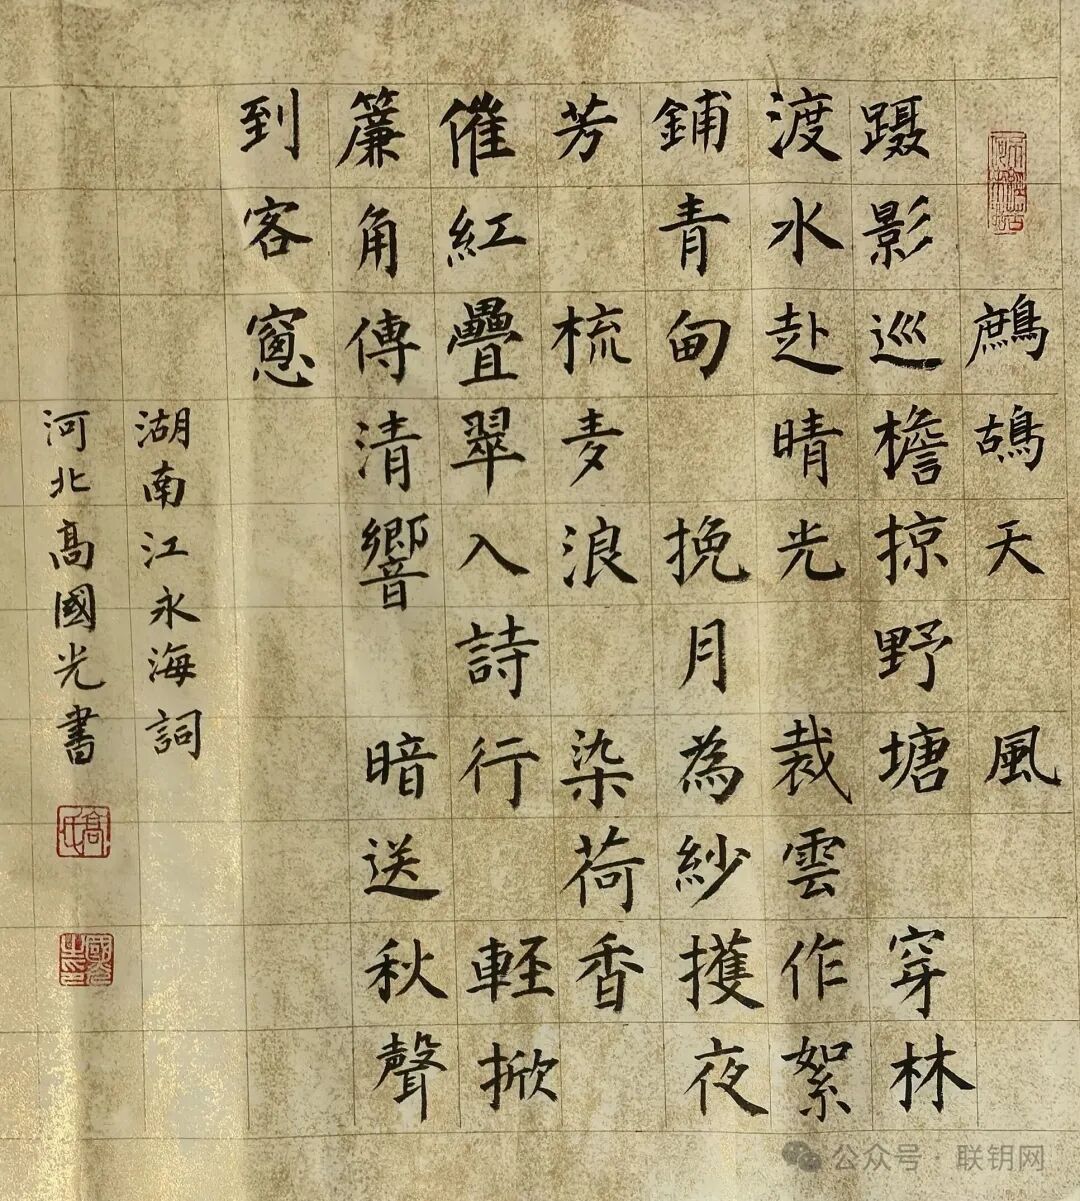 鷓鴣天 風
蹑影巡檐掠野塘 穿林
渡水赴晴光 裁雲作絮
鋪青甸 挽月為紗擭夜
芳 梳麦浪 染荷香
催紅疊翠入詩行 輕掀
簾角傳清響 暗送秋聲
到客窻
湖南江永海詞
河北高國光書
高氏
公众号·联钥网